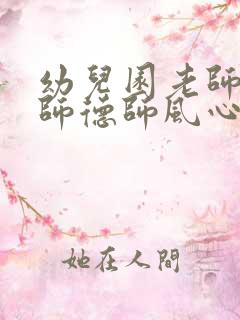 幼兒園老師
師德師風心
她在人間